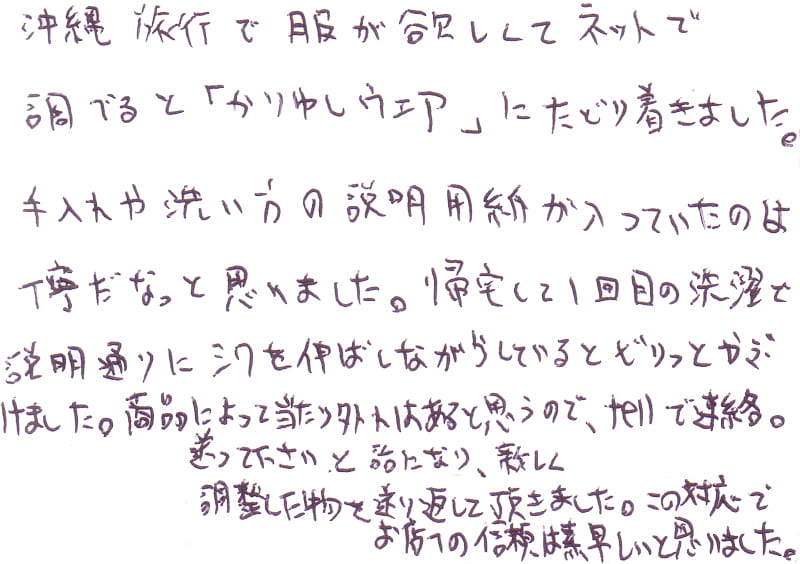 沖縄旅行で服が欲しくてネットで
調べると「かりゆしウェア」にたどり着きました。
手入れや洗い方の説明用紙が入っていたのは
丁寧だなっと思いました。帰宅して1回目の洗濯で
説明通りにシワを伸ばしながらしているとビリっとやぶ
けました。商品によって当たり外れはあると思うので、tellで連絡。
送って下さいと話になり、新しく
調整した物を送り返して頂きました。この対応で
お店への信頼は素早しいと思いました。